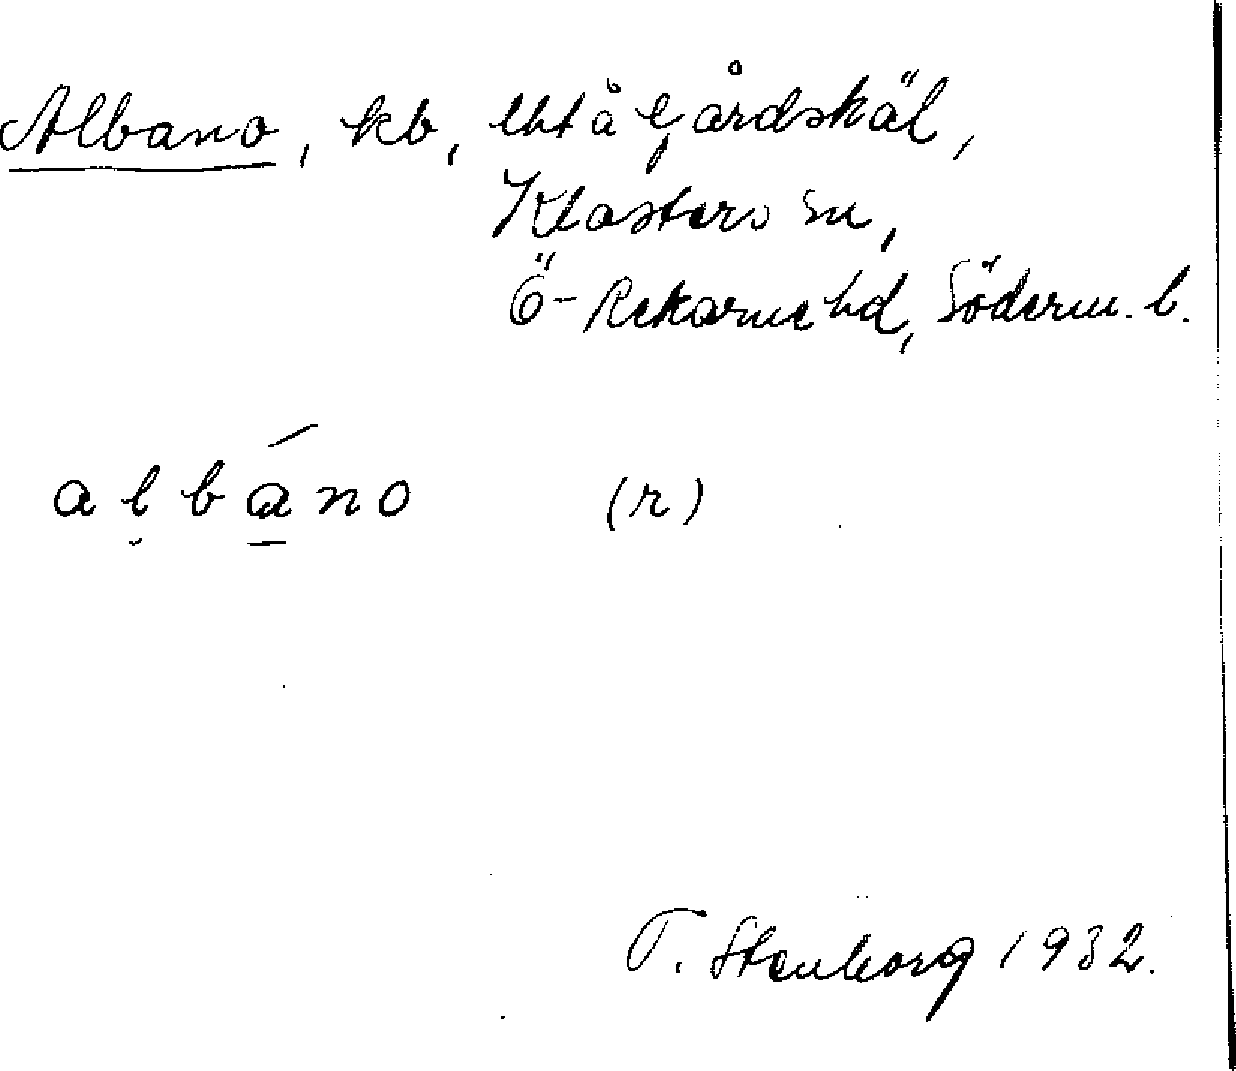 Albano, kb, lht å Gårdskäl,
Klosters sn,
Ö-Rekarne hd, Söderm. l.
albáno (r)
T. Stenborg 1932.